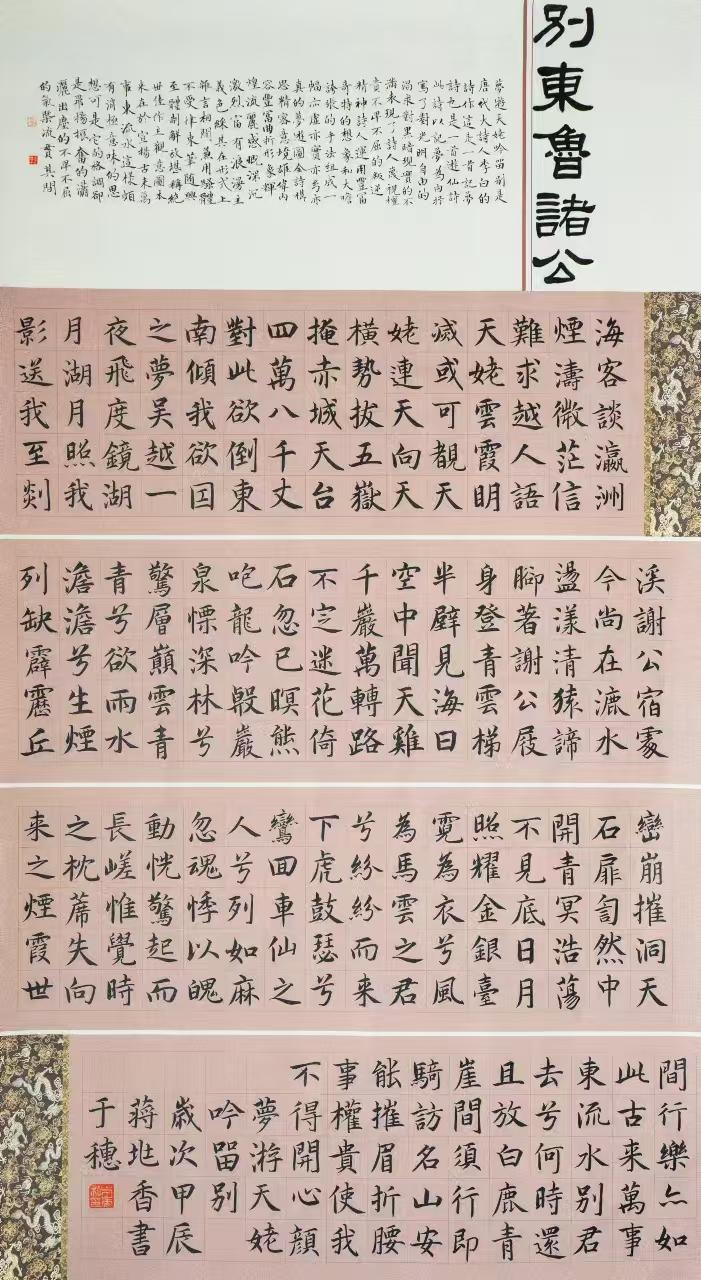 別東魯諸公
夢遊天姥吟留別是
唐代大詩人李白的
詩作這是一首記夢
詩也是一首遊仙詩
此詩以記夢為由抒
寫了對光明自由的
渴求對黑暗現實的不
滿表現了詩人蔑視權
貴不卑不屈的叛逆
精神詩人運用豐富
奇特的想象和大膽
誇張的手法組成一
幅亦虛亦實亦幻亦
真的夢遊圖全詩構
思精密意境雄偉內
容豐富曲折形象輝
煌流麗感慨深沉
激烈富有浪漫主
義色綵其在形式上
雜言相間兼用騷體
不受律束筆隨興
至體制解放堪稱絕
世佳作主觀意圖本
來在於宣揚古來萬
事東流水這樣頗
有消極意味的思
想可是它的格調卻
是昂揚振奮的瀟
灑出塵的不卑不屈
的氣槩流貫其間
海客談瀛洲
煙濤微茫信
難求越人語
天姥雲霞明
滅或可覩天
姥連天向天
橫勢拔五嶽
掩赤城天台
四萬八千丈
對此欲倒東
南傾我欲囙
之夢吳越一
夜飛度鏡湖
月湖月照我
影送我至剡
溪謝公宿處
今尚在淥水
盪漾清猿諦
腳著謝公屐
身登青雲梯
半壁見海日
空中聞天雞
千巖萬轉路
不定迷花倚
石忽已暝熊
咆龍吟殷巖
泉慄深林兮
驚層巔雲青
青兮欲雨水
澹澹兮生煙
列缺霹靂丘
巒崩摧洞天
石扉訇然中
開青冥浩蕩
不見底日月
照耀金銀臺
霓為衣兮風
為馬雲之君
兮紛紛而來
下虎鼓瑟兮
鸞回車仙之
人兮列如麻
忽魂悸以魄
動恍驚起而
長嗟惟覺時
之枕蓆失向
来之煙霞世
間行樂亦如
此古来萬事
東流水別君
去兮何時還
且放白鹿青
崖間須行即
騎訪名山安
能摧眉折腰
事權貴使我
不得開心顏
夢游天姥
吟留別
歲次甲辰
蔣兆香書
于穗